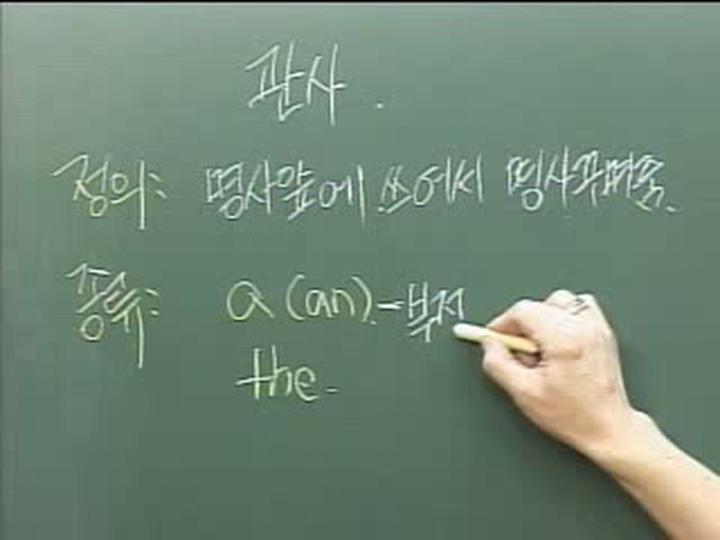 관사.
정의: 명사앞에 쓰여서 명사꾸며줌.
종류: a (an). - 부저
the.